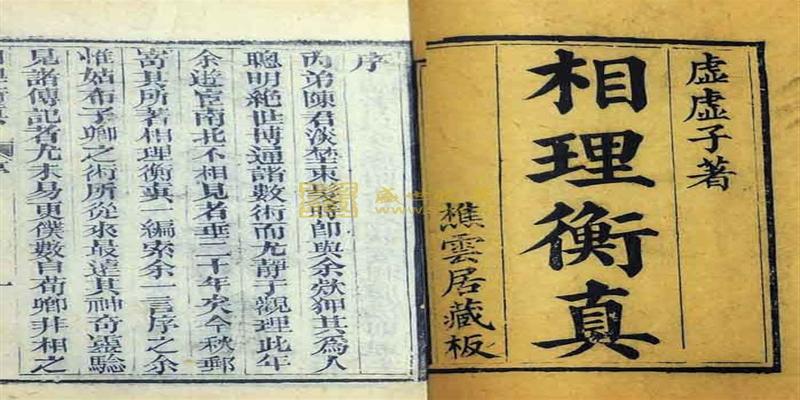 虛虛子著
相理衡真
樵雲居藏板
序
內弟陳君淡埜束髮時即與余欵狎其為人
聰明絕世博通諸數術而尤靜于觀理比年
余逰宦南北不相見者垂二十年矣今秋郵
寄其所著相理衡真一編索余一言序之余
惟姑布子卿之術所從來最遠其神奇靈驗
見諸傳記者尤未易更僕數自荀卿非相之
一